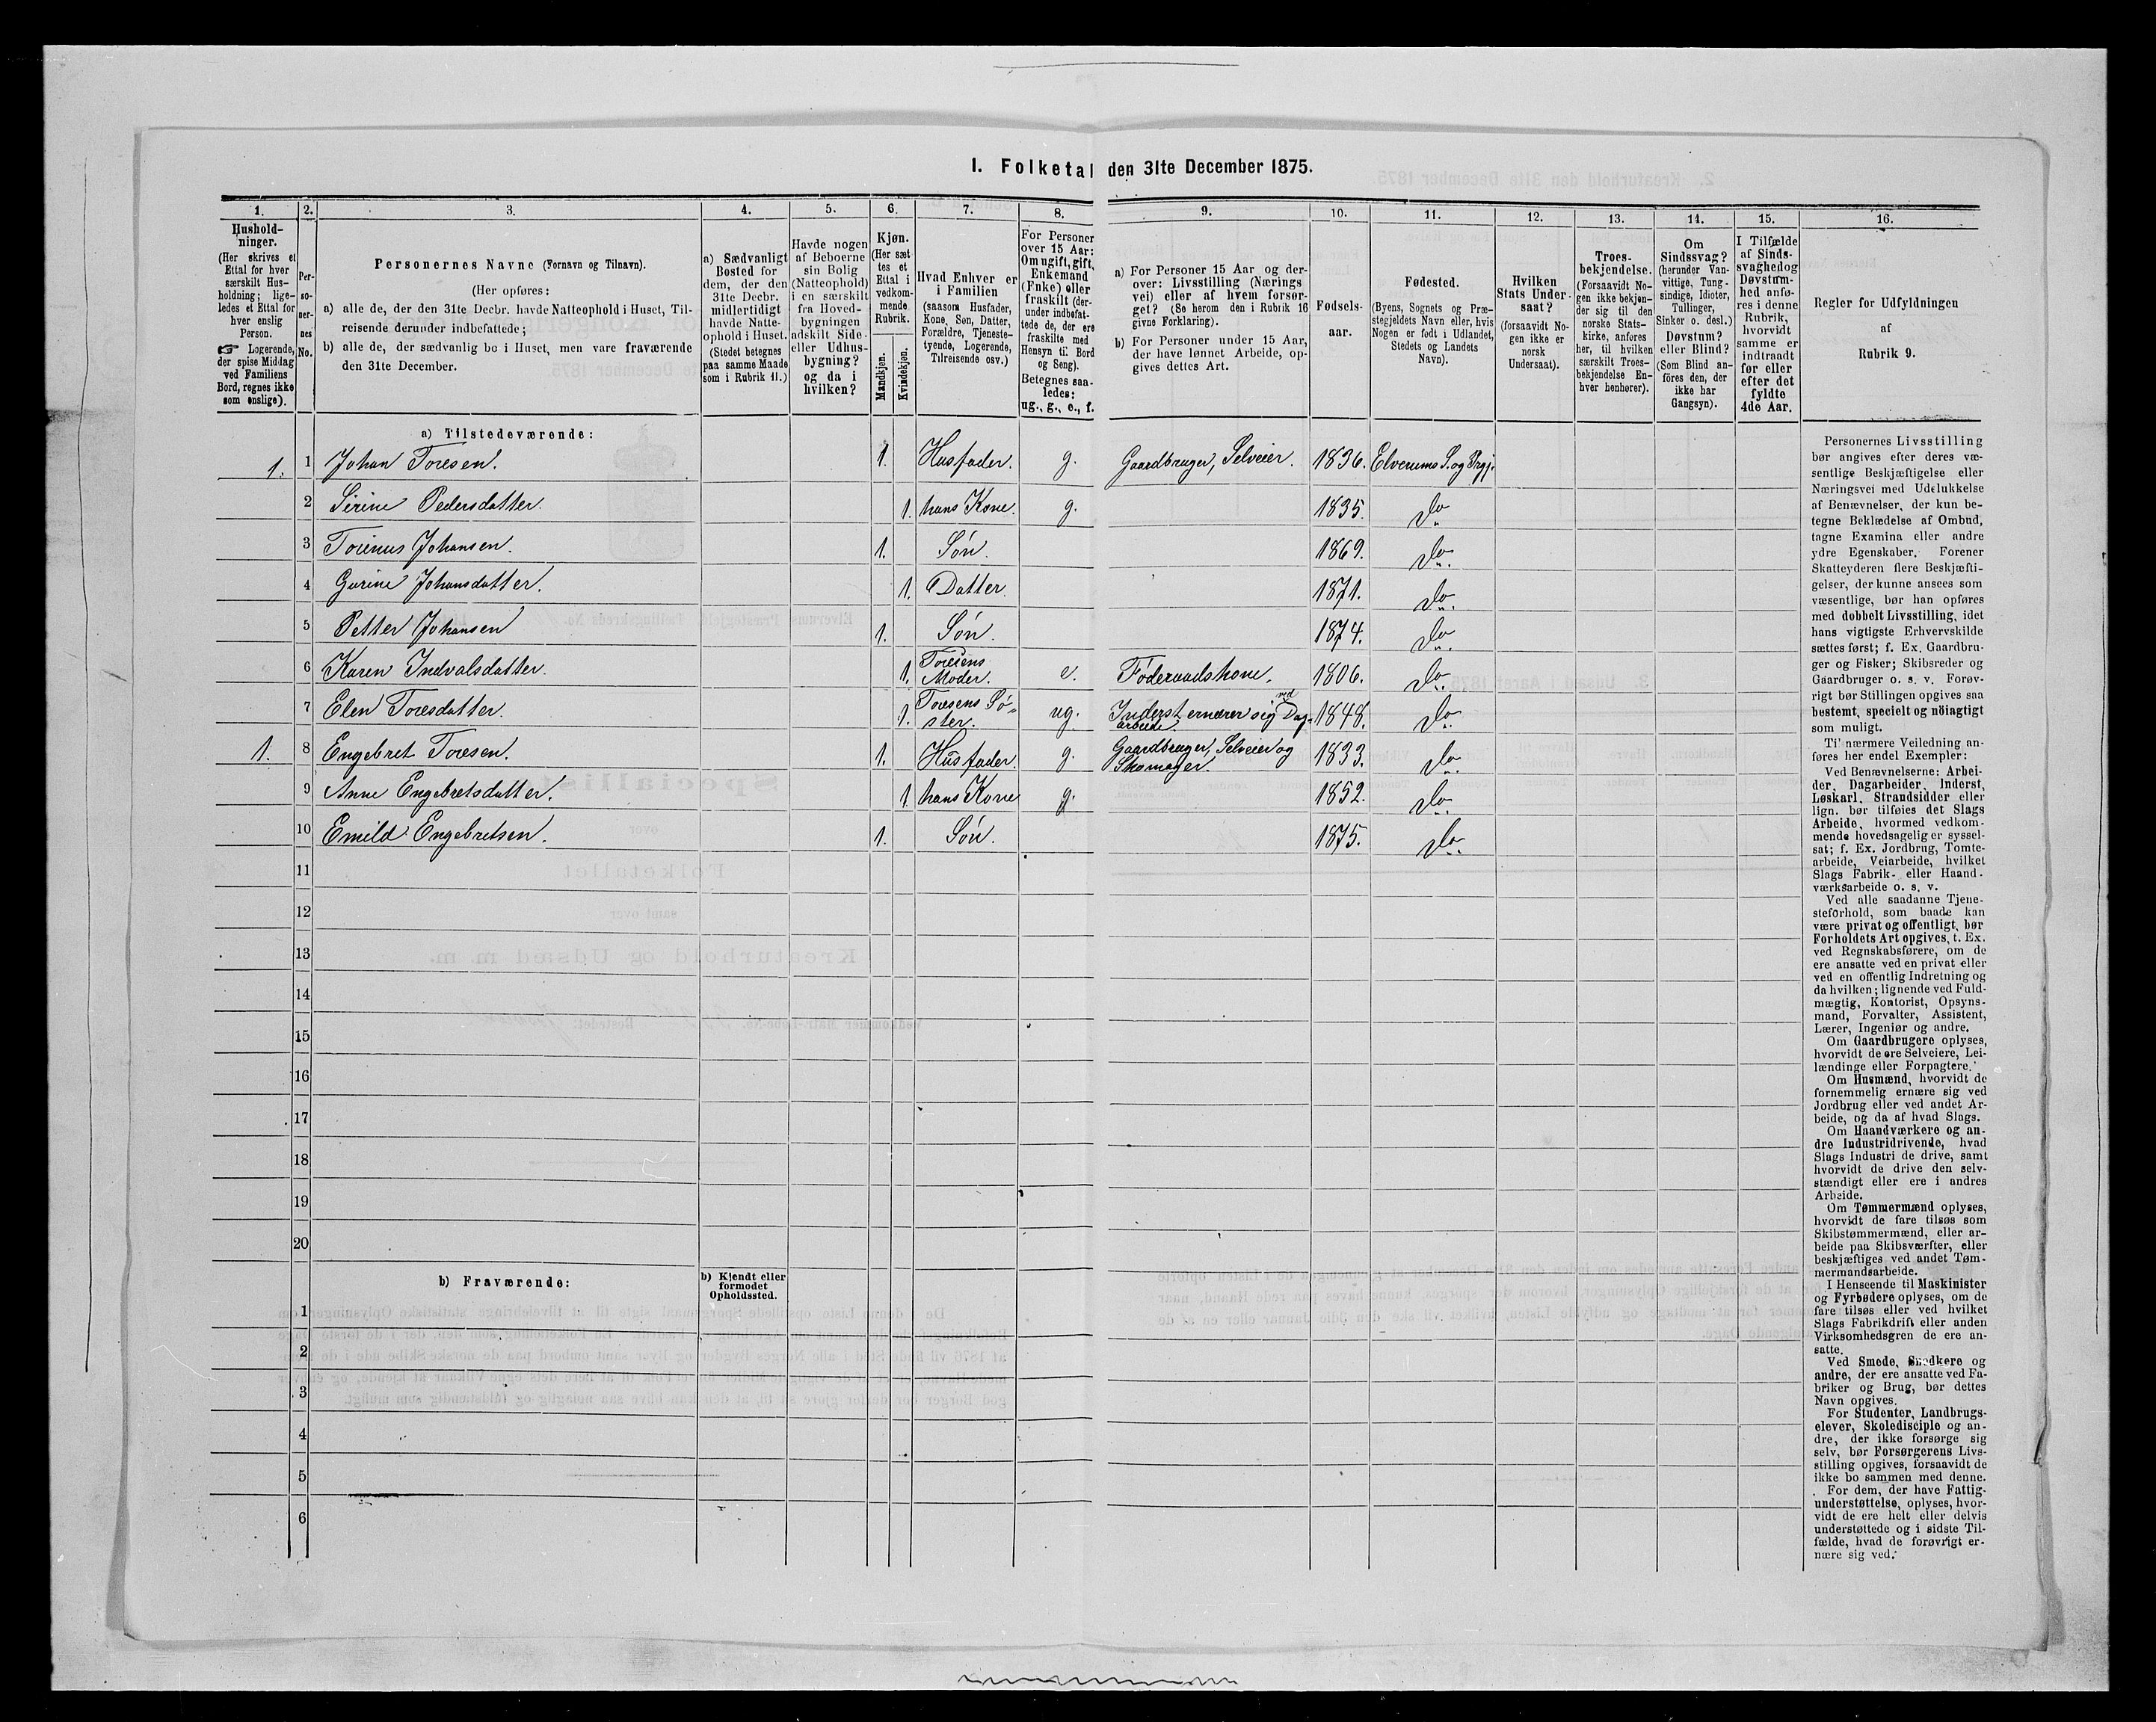 I. Folketal den 31te December 1875.
1. 2. 3. 4. 5. 6. 7. 8. 9. 10. 11. 12. 13. 14. 15. 16.
Hushold-
ninger.
(Her skrives et
Ettal for hver
særskilt Hus-
holdning; lige-
ledes et Ettal for
hver enslig
Person.
☞ Logerende,
der spise Middag
ved Familiens
Bord, regnes ikke
som enslige).
Per-
so-
ner-
nes
No.
Personernes Navne (Fornavn og Tilnavn).
(Her opføres:
a) alle de, der den 31te Decbr. havde Natteophold i Huset, Til-
reisende derunder indbefattede;
b) alle de, der sædvanlig bo i Huset, men vare fraværende
den 31te December.
a) Sædvanligt
Bosted for
dem, der den
31te Decbr.
midlertidigt
havde Natte-
ophold i Huset.
(Stedet betegnes
paa samme Maade
som i Rubrik 11.)
Havde nogen
af Beboerne
sin Bolig
(Natteophold)
i en særskilt
fra Hoved-
bygningen
adskilt Side-
eller Udhus-
bygning?
og da i
hvilken?
Kjøn.
(Her sæt
tes et
Ettal i
vedkom-
mende
Rubrik.
Mandkjøn.
Kvindekjøn.
Hvad Enhver er
i Familien
(saasom Husfader,
Kone, Søn, Datter,
Forældre, Tjeneste-
tyende, Logerende,
Tilreisende osv.)
For Personer
over 15 Aar:
Om ugift, gift,
Enkemand
(Enke) eller
fraskilt (der-
under indbefat-
tede de, der ere
fraskilte med
Hensyn til Bord
og Seng).
Betegnes saa-
ledes:
ug., g., e., f.
a) For Personer 15 Aar og der-
over: Livsstilling (Nærings
vei) eller af hvem forsør-
get? (Se herom den i Rubrik 16
givne Forklaring).
b) For Personer under 15 Aar,
der have lønnet Arbeide, op-
gives dettes Art.
Fødsels-
aar.
Fødested.
(Byens, Sognets og Præ-
stegjeldets Navn eller, hvis
Nogen er født i Udlandet,
Stedets og Landets
Navn).
Hvilken
Stats Under-
saat?
(forsaavidt No-
gen ikke er
norsk
Undersaat).
Troes-
bekjendelse.
(Forsaavidt No-
gen ikke bekjen-
der sig til den
norske Stats-
kirke, anføres
her, til hvilken
særskilt Troes-
bekjendelse En-
hver henhører).
Om
Sindssvag?
(herunder Van-
vittige, Tung-
sindige, Idioter,
Tullinger,
Sinker o. desl.)
Døvstum?
eller Blind?
(Som Blind an-
föres den, der
ikke har
Gangsyn).
I Tilfælde
af Sinds-
svaghed og
Døvstum-
hed anfø-
res i denne
Rubrik,
hvorvidt
samme er
indtraadt
før eller
efter det
fyldte
4de Aar.
Regler for Udfyldningen
af
Rubrik 9.
a) Tilstedeværende:
1. 1 Johan Toresen. 1. Husfader. g. Gaardbruger, Selveier. 1836. Elverums S. og Prgj.
2 Sirine Pedersdatter. 1. hans Kone. g. 1835. Do
3 Torinus Johansen. 1. Søn. 1869. Do.
4 Gurine Johansdatter. 1. Datter. 1871. Do.
5 Petter Johansen 1. Søn. 1874. Do.
6 Karen Indvalsdatter. 1. Toresens Moder. e. Føderaadskone. 1806. Do.
7 Elen Toresdatter. 1. Toresens Sø-ster. ug. Inderst ernærer sig ved Dag-arbeide. 1848. Do.
1. 8 Engebret Toresen. 1. Husfader. g. Gaardbruger, Selveier og Skomager. 1833. Do.
9 Anne Engebretsdatter. 1. hans Kone g. 1852. Do.
10 Emild Engebretsen. 1. Søn. 1875. Do.
11
12
13
14
15
16
17
18
19
20
b) Fraværende:
b) Kjendt eller
formodet
Opholdssted.
1
2
3
4
5
6
Personernes Livsstilling
bør angives efter deres væ-
sentlige Beskjæftigelse eller
Næringsvei med Udelukkelse
af Benævnelser, der kun be-
tegne Beklædelse af Ombud,
tagne Examina eller andre
ydre Egenskaber. Forener
Skatteyderen flere Beskjæfti-
gelser, der kunne ansees som
væsentlige, bør han opføres
med dobbelt Livsstilling, idet
hans vigtigste Erhvervskilde
sættes først; f. Ex. Gaardbru-
ger og Fisker; Skibsreder og
Gaardbruger o. s. v. Forøv-
rigt bør Stillingen opgives saa
bestemt, specielt og nöiagtigt
som muligt.
Til nærmere Veiledning an-
føres her endel Exempler:
Ved Benævnelserne: Arbei-
der, Dagarbeider, Inderst,
Løskarl, Strandsidder eller
lign. bør tilføies det Slags
Arbeide, hvormed vedkom-
mende hovedsagelig er syssel-
sat; f. Ex. Jordbrug, Tomte-
arbeide, Veiarbeide, hvilket
Slags Fabrik- eller Haand-
værksarbeide o. s. v.
Ved alle saadanne Tjene-
steforhold, som baade kan
være privat og offentligt, bør
Forholdets Art opgives, t. Ex.
ved Regnskabsførere, om de
ere ansatte ved en privat eller
ved en offentlig Indretning og
da hvilken; lignende ved Fuld-
mægtig, Kontorist, Opsyns-
mand, Forvalter, Assistent,
Lærer, Ingeniør og andre.
Om Gaardbrugere oplyses,
hvorvidt de ere Selveiere, Lei-
lændinge eller Forpagtere.
Om Husmænd, hvorvidt de
fornemmelig ernære sig ved
Jordbrug eller ved andet Ar-
beide, og da af hvad Slags.
Om Haandværkere og an-
dre Industridrivende, hvad
Slags Industri de drive, samt
hvorvidt de drive den selv-
stændigt eller ere i andres
Arbeide.
Om Tømmermænd oplyses,
hvorvidt de fare tilsøs som
Skibstømmermænd, eller ar-
beide paa Skibsværfter, eller
beskjæftiges ved andet Tøm-
mermandsarbeide.
I Henseende til Maskinister
og Fyrbødere oplyses, om de
fare tilsøs eller ved hvilket
Slags Fabrikdrift eller anden
Virksomhedsgren de ere an-
satte.
Ved Smede, Snedkere og
andre, der ere ansatte ved Fa-
briker og Brug, bør dettes
Navn opgives.
For Studenter, Landbrugs-
elever, Skoledisciple og an-
dre, der ikke forsørge sig
selv, bør Forsørgerens Livs-
stilling opgives, forsaavidt de
ikke bo sammen med denne.
For dem, der have Fattig-
understøttelse, oplyses, hvor-
vidt de ere helt eller delvis
understøttede og i sidste Til-
fælde, hvad de forøvrigt er-
nære sig ved.